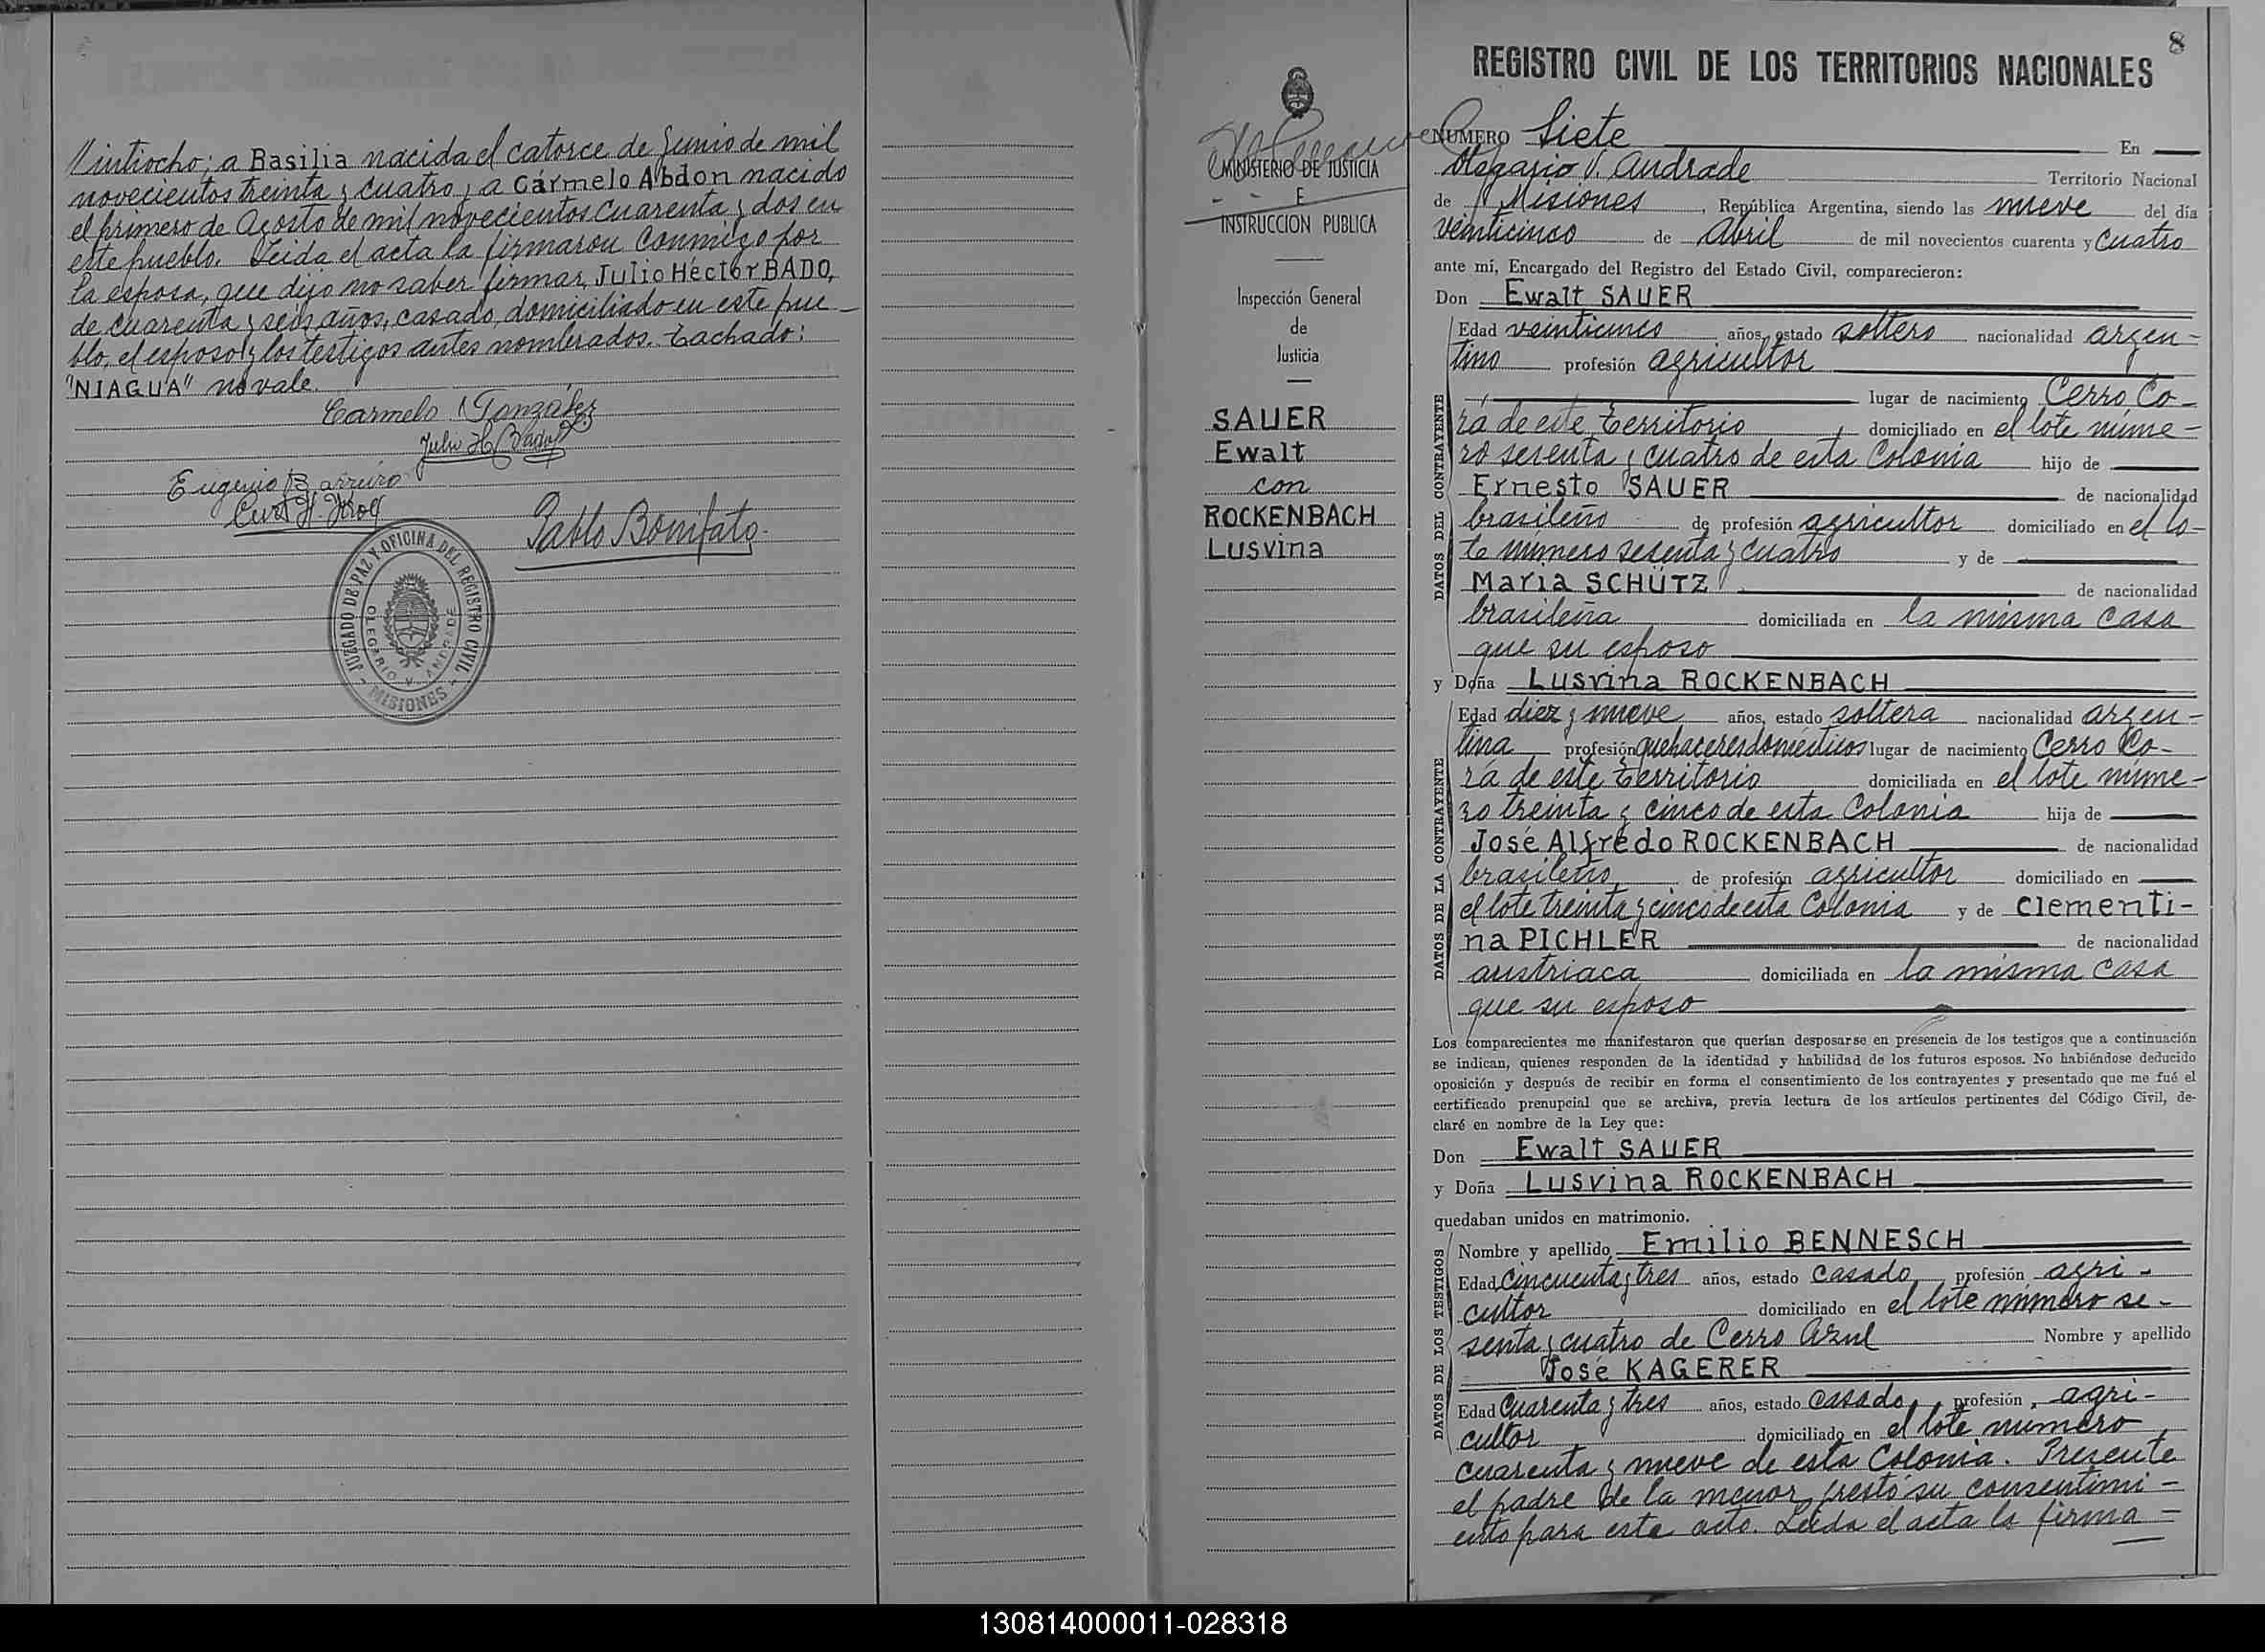 Vintiocho; a Basilia nacida el catorce de Junio de mil
novecientos treinta y cuatro; a Cármelo Abdon nacido
el primero de Agosto de mil novecientos cuarenta y dos en
este pueblo. Leida el acta la firmaron conmigo por
la esposa, que dijo no saber firmar, Julio Héctor BADO,
de cuarenta y seis años, casado, domiciliado en este pue-
blo, el esposo y los testigos antes nombrados. Tachado:
"NIAGUA" no vale.
Carmelo González
Julio H. Bado
Eugenio Barreiro
Pablo Bonifato.
JUZGADO DE PAZ Y OFICINA DEL REGISTRO CIVIL
OLEGARIO V. ANDRADE
- MISIONES -
MINISTERIO DE JUSTICIA
E
INSTRUCCION PUBLICA
Inspección General
de
Justicia
SAUER
Ewalt
con
ROCKENBACH
Lusvina
8
REGISTRO CIVIL DE LOS TERRITORIOS NACIONALES
NUMERO Siete En
Olegario V. Andrade Territorio Nacional
de Misiones, República Argentina, siendo las nueve del día
veinticinco de Abril de mil novecientos cuarenta y cuatro
ante mí, Encargado del Registro del Estado Civil, comparecieron:
Don Ewalt SAUER
DATOS DEL CONTRAYENTE
Edad veinticinco años, estado soltero nacionalidad argen-
tino profesión agricultor
lugar de nacimiento Cerro Co-
rá de este territorio domiciliado en el lote núme-
ro sesenta y cuatro de esta Colonia hijo de
Ernesto SAUER de nacionalidad
brasileño de profesión agricultor domiciliado en el lo-
te número sesenta y cuatro y de
María SCHÜTZ de nacionalidad
brasileña domiciliada en la misma casa
que su esposo
y Doña Lusvina ROCKENBACH
DATOS DE LA CONTRAYENTE
Edad diez y nueve años, estado soltera nacionalidad argen-
tina profesión quehaceres domésticos lugar de nacimiento Cerro Co-
rá de este territorio domiciliada en el lote núme-
ro treinta y cinco de esta Colonia hija de
José Alfredo ROCKENBACH de nacionalidad
brasileño de profesión agricultor domiciliado en
el lote treinta y cinco de esta Colonia y de Clementi-
na PICHLER de nacionalidad
austriaca domiciliada en la misma casa
que su esposo
Los comparecientes me manifestaron que querían desposarse en presencia de los testigos que a continuación
se indican, quienes responden de la identidad y habilidad de los futuros esposos. No habiéndose deducido
oposición y después de recibir en forma el consentimiento de los contrayentes y presentado que me fué el
certificado prenupcial que se archiva, previa lectura de los artículos pertinentes del Código Civil, de-
claré en nombre de la Ley que:
Don Ewalt SAUER
y Doña Lusvina ROCKENBACH
quedaban unidos en matrimonio.
DATOS DE LOS TESTIGOS
Nombre y apellido Emilio BENNESCH
Edad Cincuenta y tres años, estado casado profesión agri-
cultor domiciliado en el lote número se-
senta y cuatro de Cerro Azul Nombre y apellido
José KAGERER
Edad Cuarenta y tres años, estado casado, profesión, agri-
cultor domiciliado en el lote número
cuarenta y nueve de esta Colonia. Presente
el padre de la menor prestó su consentimi-
ento para este acto. Leida el acta la firma=
130814000011-028318